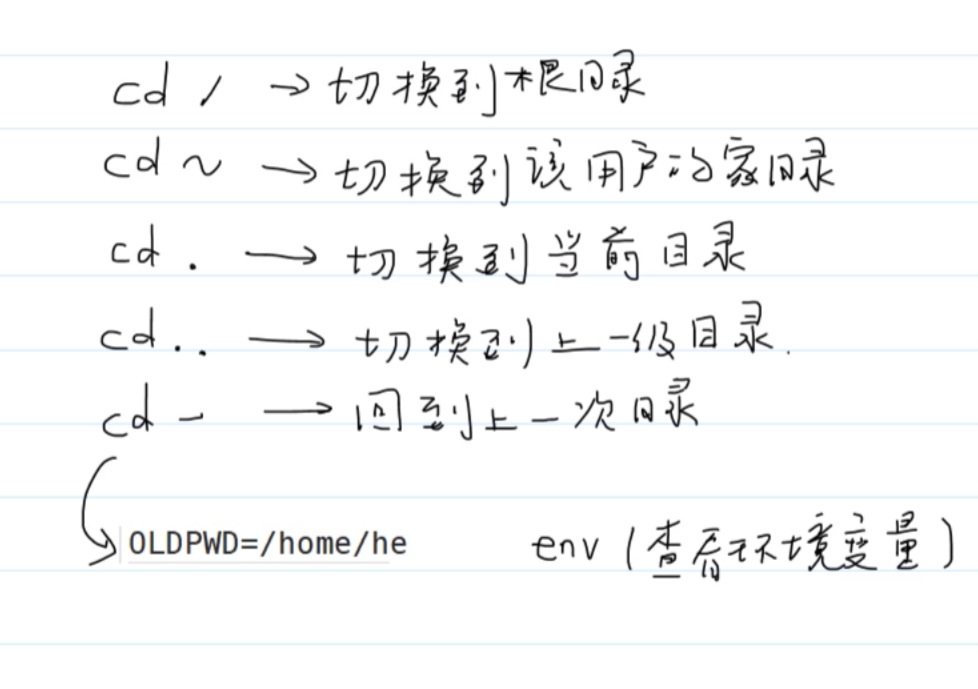 cd / → 切换到根目录
cd ~ → 切换到该用户的家目录
cd . → 切换到当前目录
cd .. → 切换到上一级目录.
cd - → 回到上一次目录
OLDPWD=/home/he env (查看环境变量)